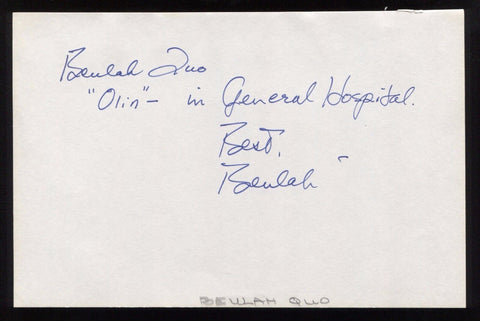 Beulah Quo
"Olin" - in General Hospital.
Best,
Beulah
BEULAH QUO